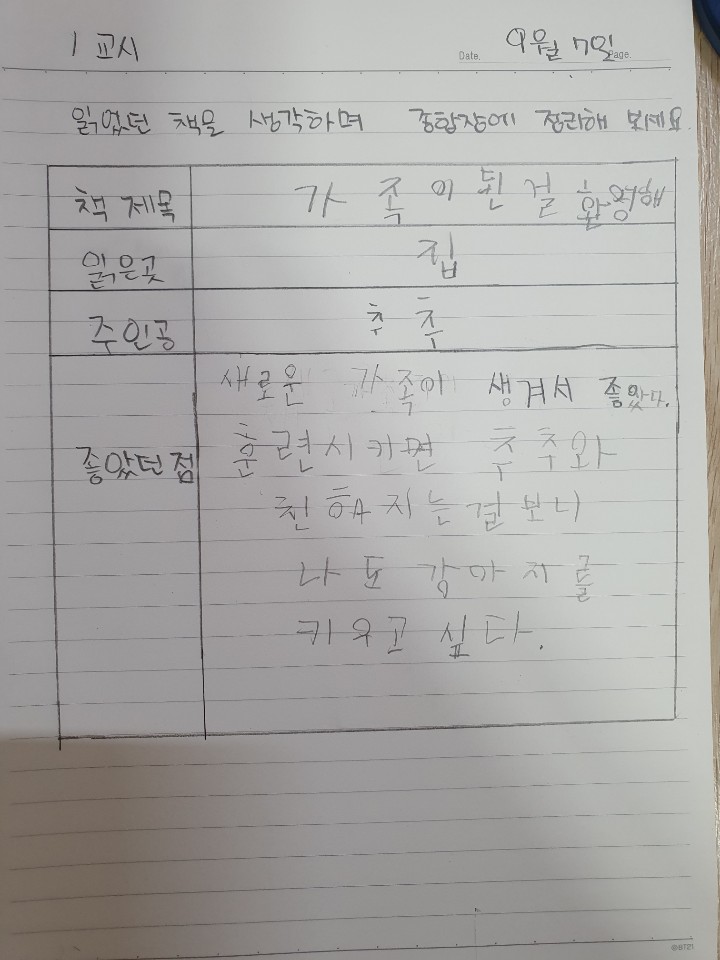 1 교시
Date. 9월 7일 Page.
읽었던 책을 생각하며 종합장에 정리해 보세요
책 제목 가족이 된 걸 환영해
읽은곳 집
주인공 추추
좋았던 점
새로운 가족이 생겨서 좋았다.
훈련시키면 추추와
친해지는걸 보니
나도 강아지를
키우고 싶다.